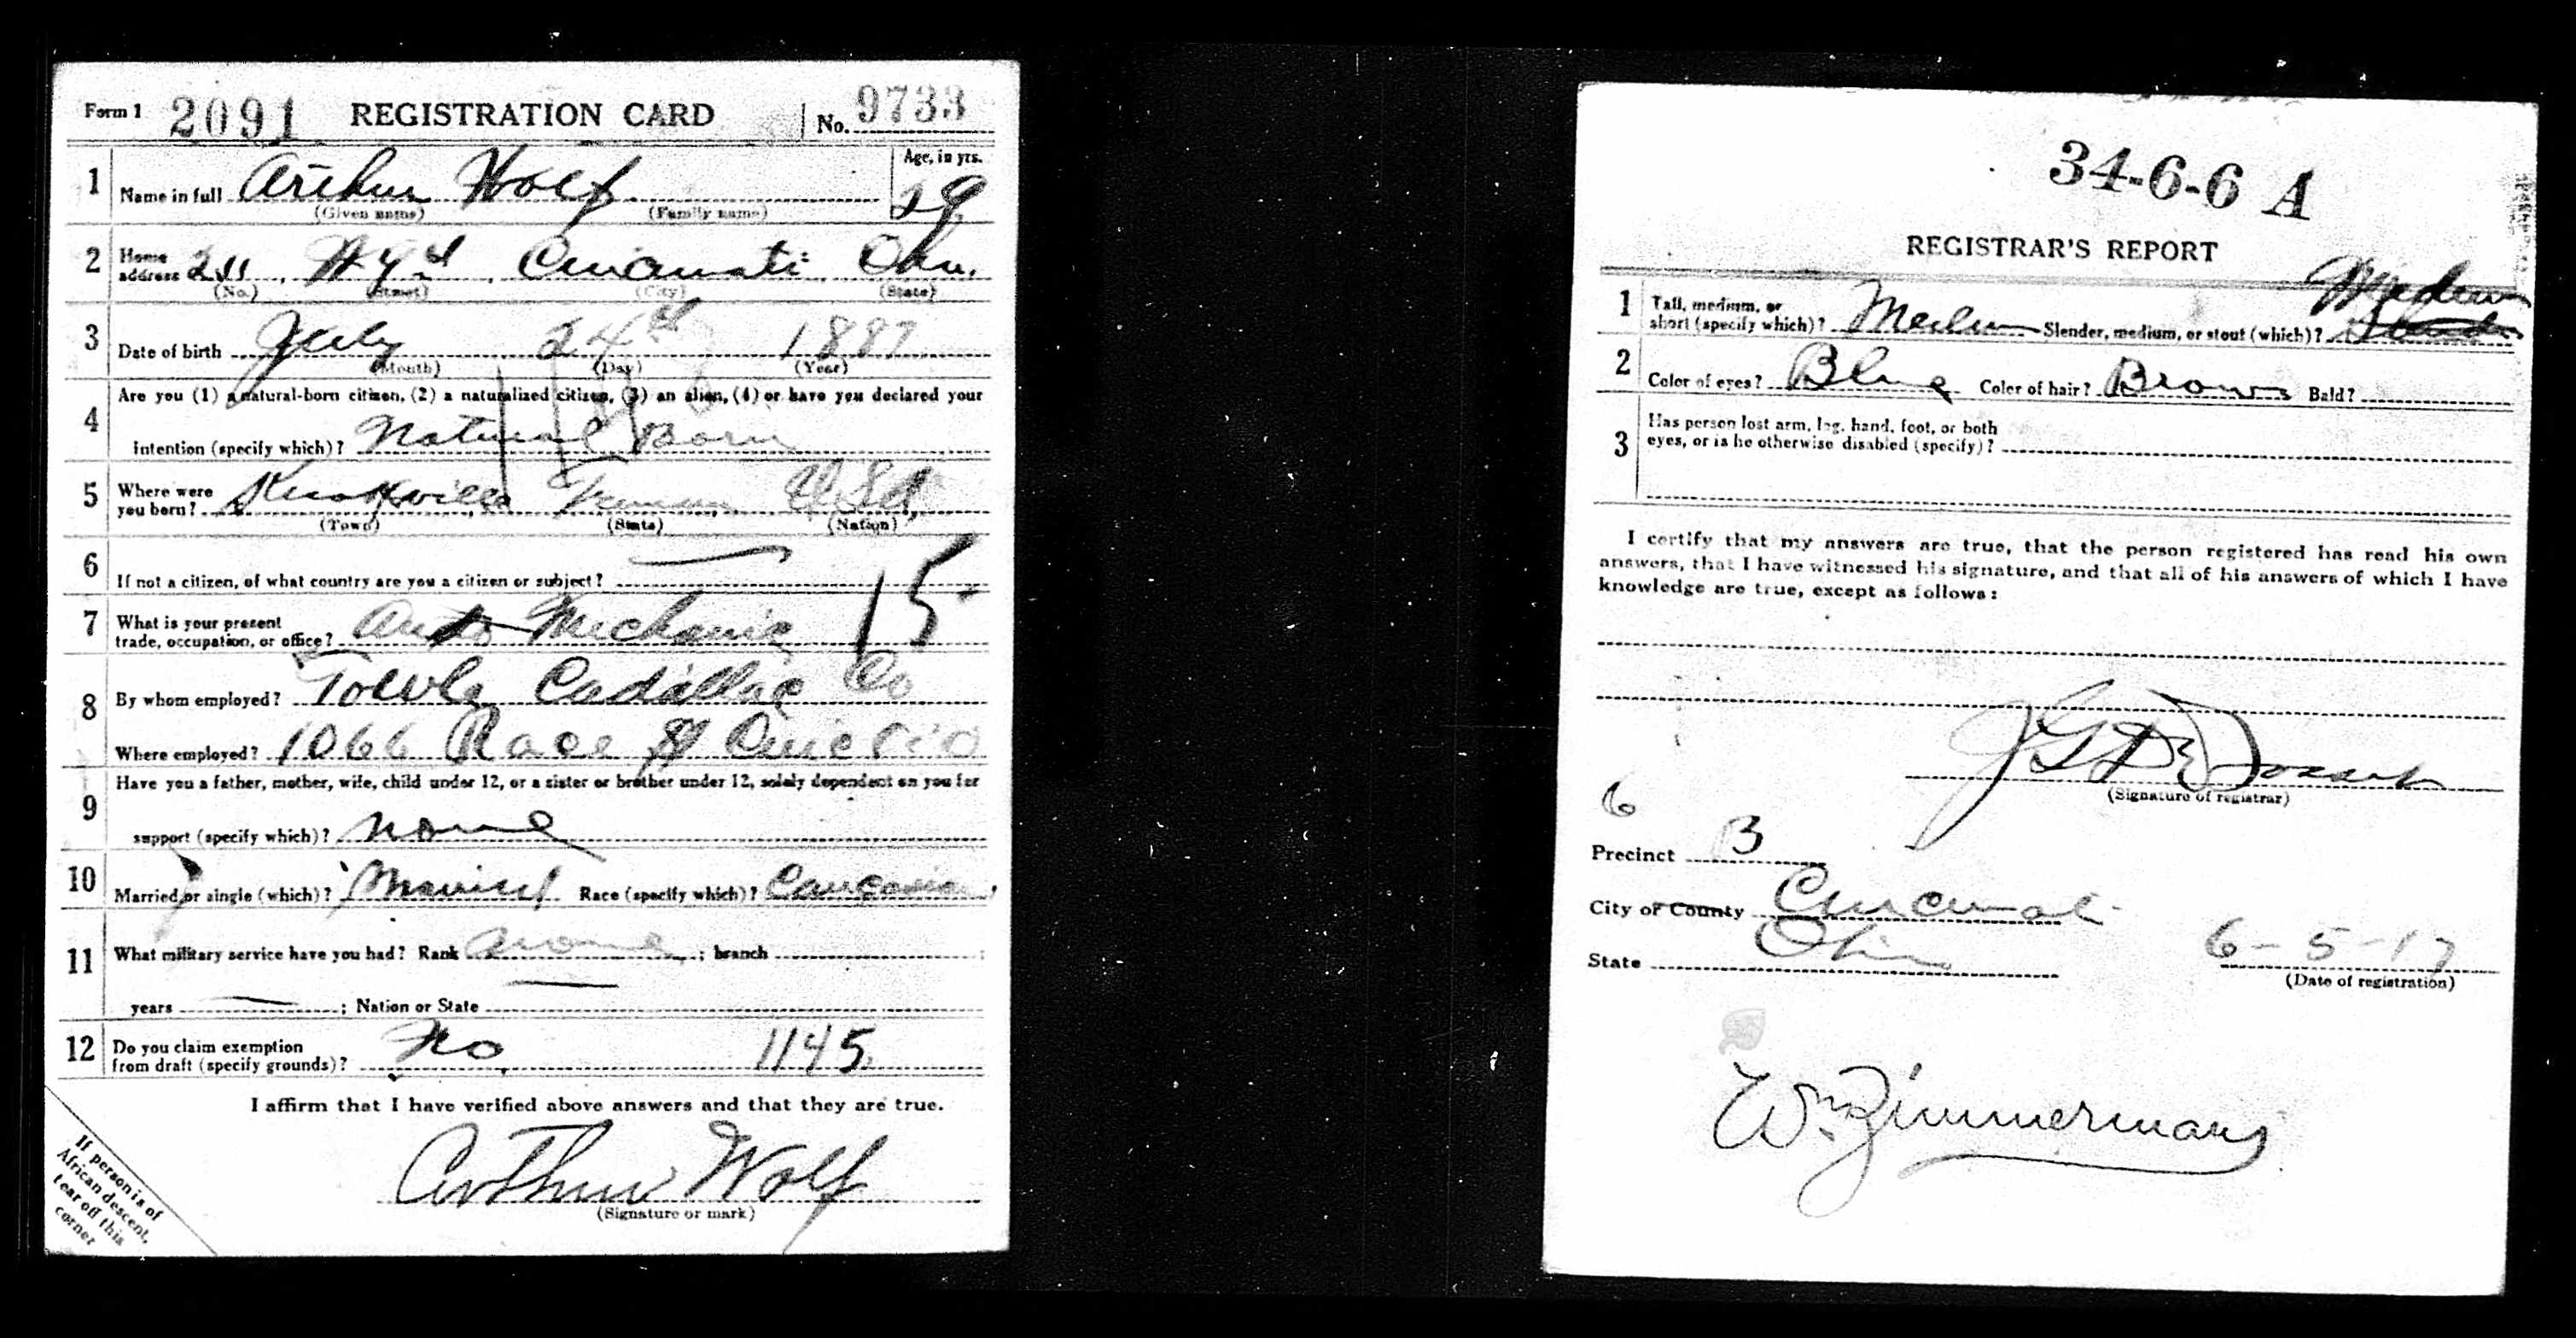 Form 1 2091 REGISTRATION CARD No. 9733
1 Name in full Arthur Wolf Age, in yrs. 29
(Given name) (Family name)
2 Home address 211 W 9th Cincinnati Ohio
(No.) (Street) (City) (State)
3 Date of birth July 24th 1887
(Month) (Day) (Year)
4 Are you (1) a natural-born citizen, (2) a naturalized citizen, (3) an alien, (4) or have you declared your
intention (specify which)? Natural Born
5 Where were you born? Knoxville U.S.A.
(Town) (State) (Nation)
6 If not a citizen, of what country are you a citizen or subject?
15
7 What is your present trade, occupation, or office? Auto Mechanic
8 By whom employed? Towle Cadillac Co
Where employed? 1066 Race St
9 Have you a father, mother, wife, child under 12, or a sister or brother under 12, solely dependent on you for
support (specify which)? none
10 Married or single (which)? Married Race (specify which)? Caucasian
11 What military service have you had? Rank none ; branch
years ; Nation or State
12 Do you claim exemption from draft (specify grounds)? No 1145
I affirm that I have verified above answers and that they are true.
Arthur Wolf
(Signature or mark)
If person is of
African descent,
tear off this
corner
34-6-6 A
REGISTRAR'S REPORT
1 Tall, medium, or short (specify which)? Medium Slender, medium, or stout (which)? Medium
2 Color of eyes? Blue Color of hair? Brown Bald?
3 Has person lost arm, leg, hand, foot, or both
eyes, or is he otherwise disabled (specify)?
I certify that my answers are true, that the person registered has read his own
answers, that I have witnessed his signature, and that all of his answers of which I have
knowledge are true, except as follows:
(Signature of registrar)
6
Precinct B
City or County Cincinnati
State Ohio 6-5-17
(Date of registration)
Wm Zimmerman